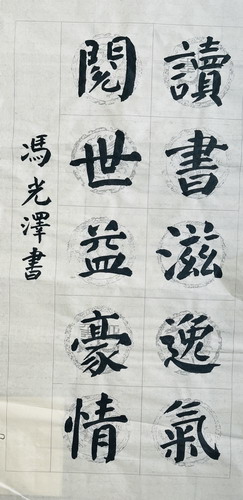 讀書滋逸氣
閱世益豪情
馮光澤書